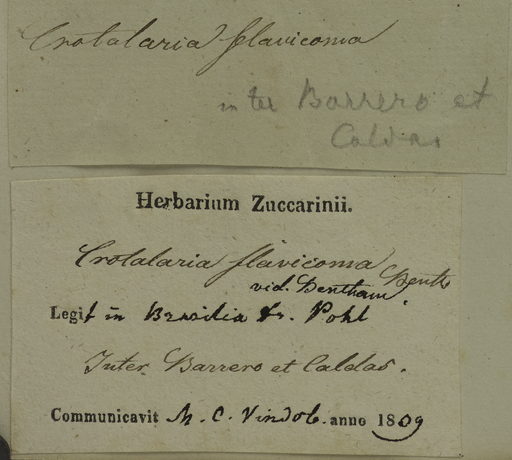 Crotalaria flavicoma
inter Barrero et
Caldas
Herbarium Zuccarinii.
Crotalaria flavicoma Benth
vid. Bentham.
Legit in Brasilia Dr. Pohl
Inter Barrero et Caldas.
Communicavit M. C. Vindob. anno 1839